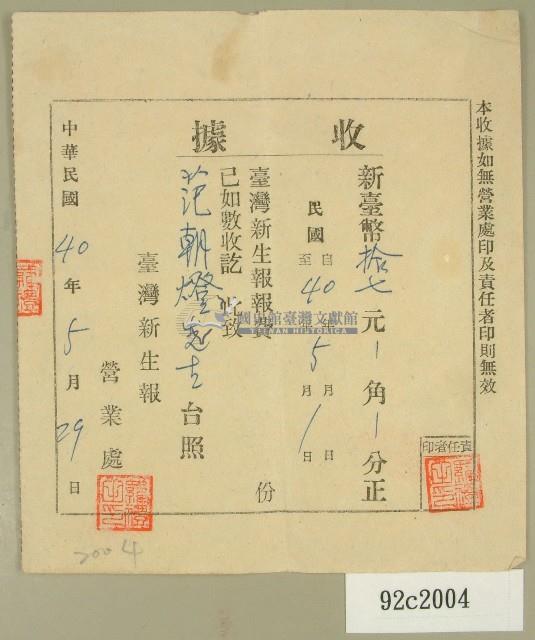 本收據如無營業處印及責任者印則無效
收據
新臺幣拾七元角分正
責任者印
民國自40年5月1日
至年月日
臺灣新生報報費份
已如數收訖此致
范朝燈先生台照
臺灣新生報
營業處
中華民國40年5月29日
國史館臺灣文獻館
TAIWAN HISTORICA
2004
92c2004